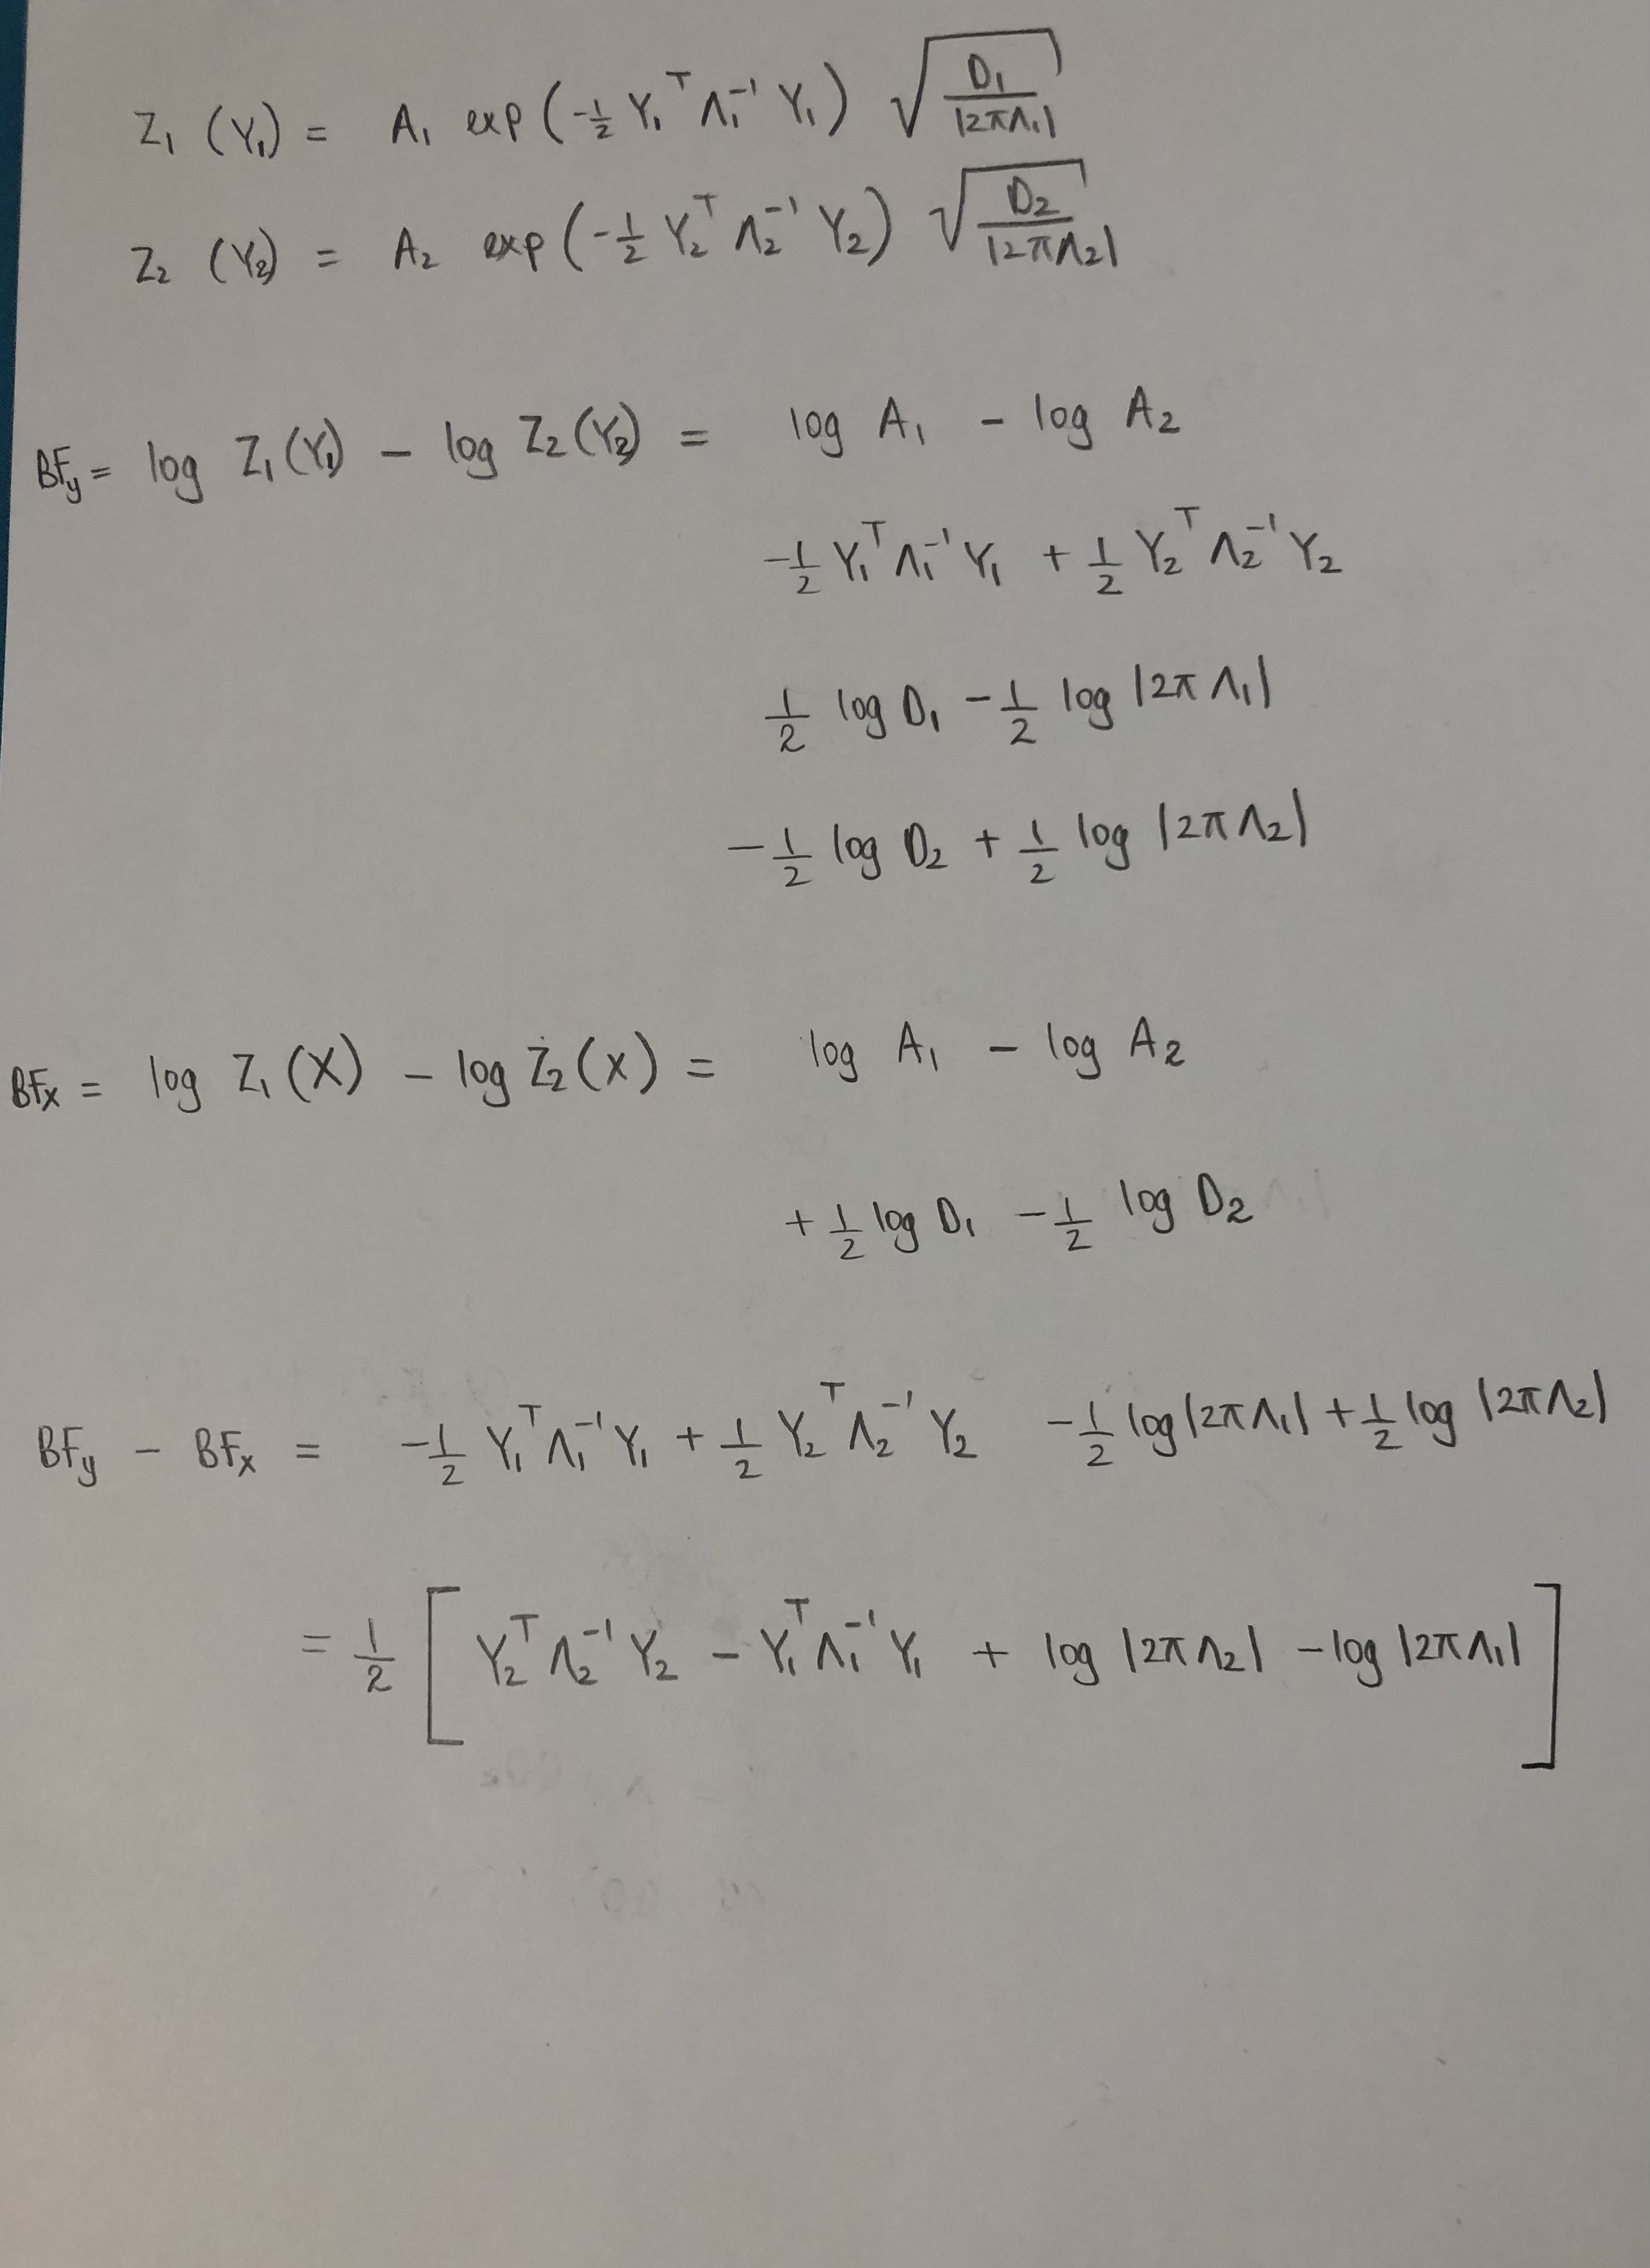 Z₁ (Y₁) = A₁ exp (-½ Y₁ᵀ Λ₁⁻¹ Y₁) √(D₁ / |2πΛ₁|)
Z₂ (Y₂) = A₂ exp (-½ Y₂ᵀ Λ₂⁻¹ Y₂) √(D₂ / |2πΛ₂|)
BF_y = log Z₁(Y₁) - log Z₂(Y₂) = log A₁ - log A₂
-½ Y₁ᵀ Λ₁⁻¹ Y₁ + ½ Y₂ᵀ Λ₂⁻¹ Y₂
½ log D₁ - ½ log |2πΛ₁|
-½ log D₂ + ½ log |2πΛ₂|
BFₓ = log Z₁(X) - log Z₂(X) = log A₁ - log A₂
+ ½ log D₁ - ½ log D₂
BF_y - BFₓ = -½ Y₁ᵀ Λ₁⁻¹ Y₁ + ½ Y₂ᵀ Λ₂⁻¹ Y₂ -½ log|2πΛ₁| + ½ log |2πΛ₂|
= ½ [ Y₂ᵀ Λ₂⁻¹ Y₂ - Y₁ᵀ Λ₁⁻¹ Y₁ + log |2πΛ₂| - log |2πΛ₁| ]